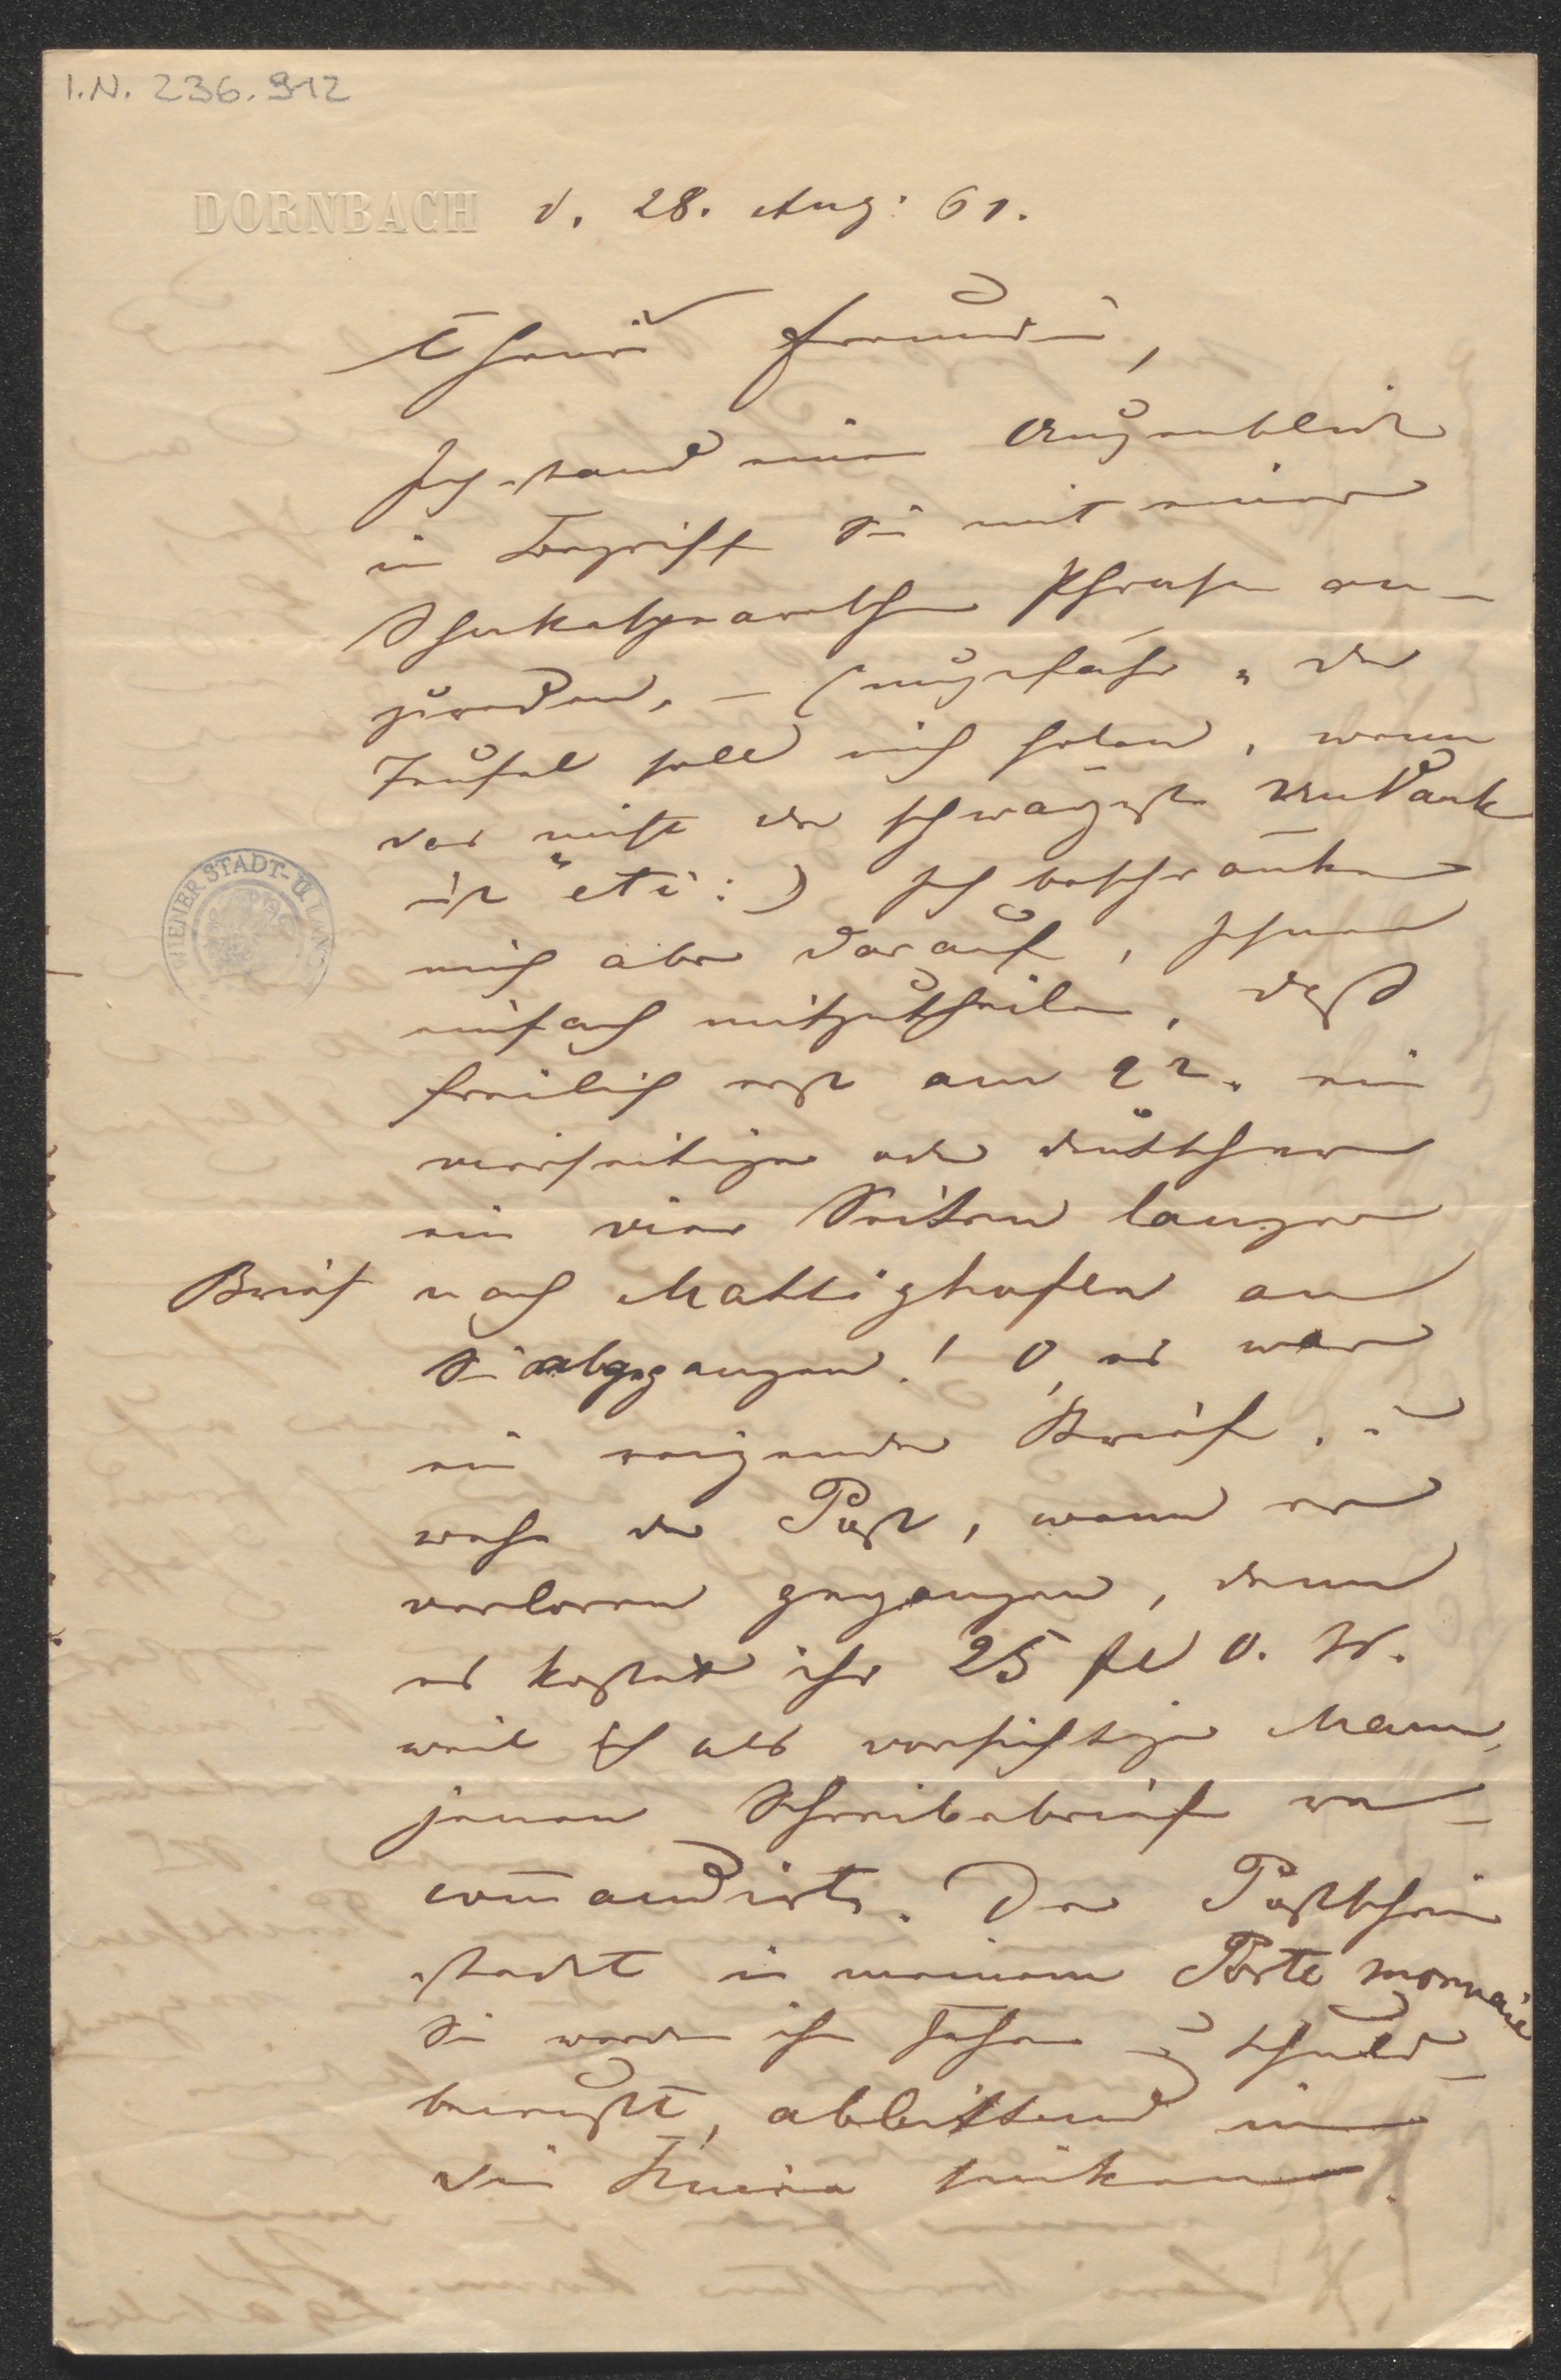 I.N. 236.912
DORNBACH d. 28. Aug: 61.
Theure Freundin,
Ich stand einen Augenblick
im Begriff Sie mit einer
Phrase an-
zureden, – (ungefähr „der
Teufel soll mich holen, wenn
das nicht der schwärzeste Undank
ist" etc:) Ich beschränke
mich aber darauf, Ihnen
einfach mitzutheilen, daß
freilich erst am 22. ein
vierseitiger oder deutscher
ein vier Seiten langer
Brief nach Mattighofen an
Sie abgegangen! O, es war
ein reizender Brief, u
wehe der Post, wenn er
verloren gegangen, denn
es kostet ihr 25 fl ö. W.
weil ich als vorsichtiger Mann,
jenen Schreibebrief re-
commandirte. Der Postschein
steckt in meinem Porte monnaie
Sie werden ihn sehen u schuld-
bewußt, abbittend in
die Kniee sinken.
WIENER STADT- U. LAN